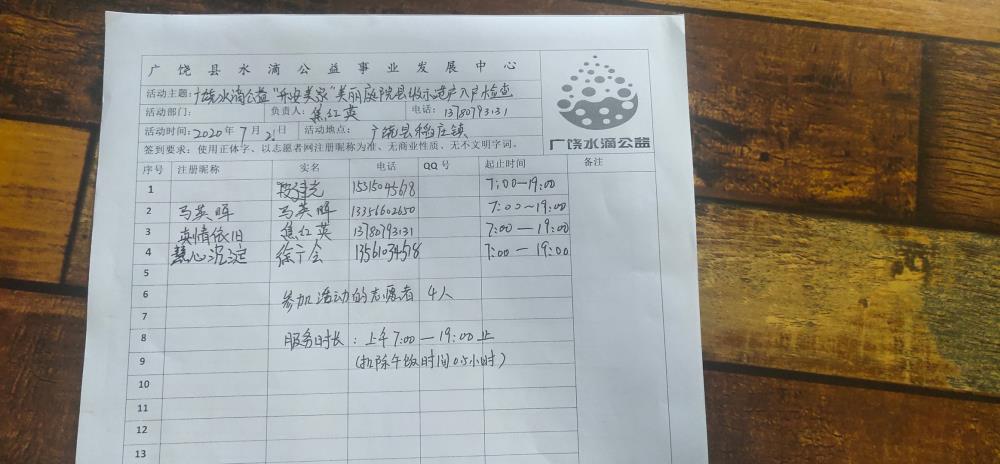 广饶县水滴公益事业发展中心
活动主题：广饶水滴公益"平安美家"美丽庭院县级示范户入户检查
活动部门： 负责人：焦红英 电话：13780793131
活动时间：2020年7月21日 活动地点：广饶县稻庄镇
签到要求：使用正体字、以志愿者网注册昵称为准、无商业性质、无不文明字词。
广饶水滴公益
序号 注册昵称 实名 电话 QQ号 起止时间 备注
1 15315045668 7:00—19:00
2 马英晖 马英晖 13356602650 7:00～19:00
3 真情依旧 焦红英 13780793131 7:00—19:00
4 慧心沉淀 徐宁会 13561034518 7:00—19:00
5
6 参加活动的志愿者 4人
7
8 服务时长：上午7:00—19:00止
9 (扣除午饭时间0.5小时)
10
11
12
13